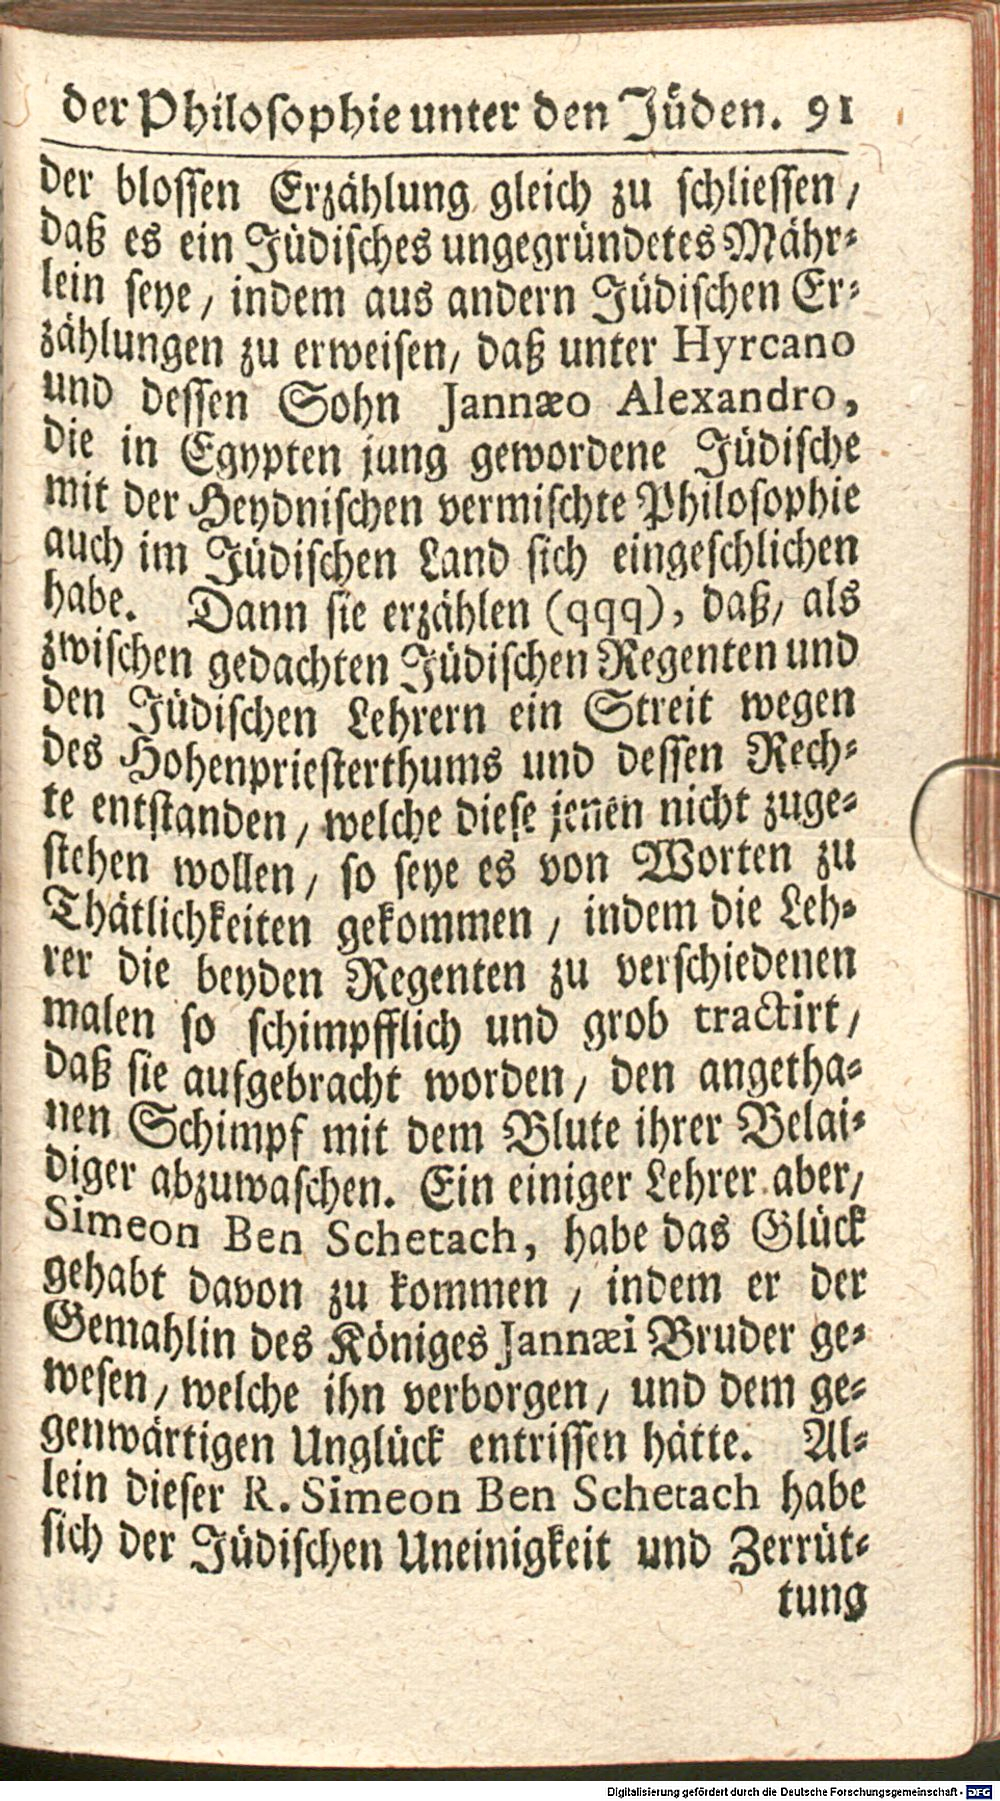 der Philosophie unter den Jüden. 91
der blossen Erzählung gleich zu schliessen /
daß es ein Jüdisches ungegründetes Mähr-
lein seye / indem aus andern Jüdischen Er-
zählungen zu erweisen / daß unter Hyrcano
und dessen Sohn Jannæo Alexandro,
die in Egypten jung gewordene Jüdische
mit der Heydnischen vermischte Philosophie
auch im Jüdischen Land sich eingeschlichen
habe. Dann sie erzählen (qqq), daß / als
zwischen gedachten Jüdischen Regenten und
den Jüdischen Lehrern ein Streit wegen
des Hohenpriesterthums und dessen Rech-
te entstanden / welche diese jenen nicht zuge-
stehen wollen / so seye es von Worten zu
Thätlichkeiten gekommen / indem die Leh-
rer die beyden Regenten zu verschiedenen
malen so schimpfflich und grob tractirt /
daß sie aufgebracht worden / den angetha-
nen Schimpf mit dem Blute ihrer Belai-
diger abzuwaschen. Ein einiger Lehrer aber /
Simeon Ben Schetach, habe das Glück
gehabt davon zu kommen / indem er der
Gemahlin des Königes Jannæi Bruder ge-
wesen / welche ihn verborgen / und dem ge-
genwärtigen Unglück entrissen hätte. Al-
lein dieser R. Simeon Ben Schetach habe
sich der Jüdischen Uneinigkeit und Zerrüt-
tung
Digitalisierung gefördert durch die Deutsche Forschungsgemeinschaft - DFG